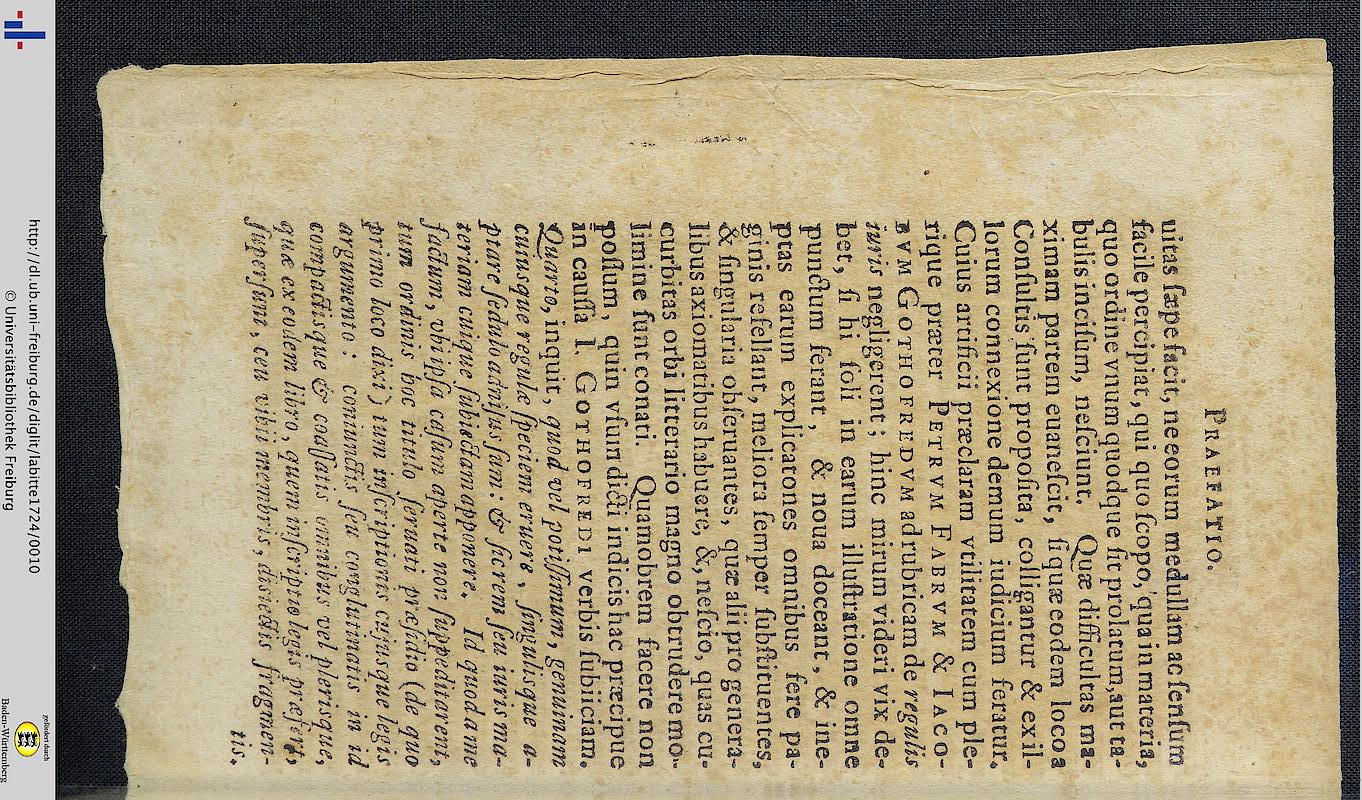 PRAEFATIO.
uitas ſæpe facit, ne eorum medullam ac ſenſum
facile percipiat, qui quo ſcopo, qua in materia,
quo ordine vnum quodque ſit prolatum, aut ta-
bulis inciſum, neſciunt. Quæ difficultas ma-
ximam partem euaneſcit, ſi quæ eodem loco a
Conſultis ſunt propoſita, colligantur & ex il-
lorum connexione demum iudicium feratur.
Cuius artificii præclaram vtilitatem cum ple-
rique præter PETRVM FABRVM & IACO-
BVM GOTHOFREDVM ad rubricam de regulis
iuris negligerent; hinc mirum videri vix de-
bet, ſi hi ſoli in earum illuſtratione omne
punctum ferant, & noua doceant, & ine-
ptas earum explicatones omnibus fere pa-
ginis refellant, meliora ſemper ſubſtituentes,
& ſingularia obſeruantes, quæ alii pro genera-
libus axiomatibus habuere, &, neſcio, quas cu-
curbitas orbi litterario magno obtrudere mo-
limine ſunt conati. Quamobrem facere non
poſſum, quin vſum dicti indicis hac præcipue
in cauſſa I. GOTHOFREDI verbis ſubiiciam.
Quarto, inquit, quod vel potiſſimum, genuinam
cuiusque regulæ ſpeciem eruere, ſingulisque a-
ptare ſedulo adniſus ſum: & ſicrem ſeu iuris ma-
teriam cuique ſubiectam apponere. Id quod a me
factum, vbi ipſa caſum aperte non ſuppeditarent,
tum ordinis hoc titulo ſeruati præſidio (de quo
primo loco dixi) tum inſcriptionis cujusque legis
argumento: coniunctis ſeu conglutinatis in id
compactisque & coaſſatis omnibus vel plerisque,
quæ ex eodem libro, quem inſcriptio legis præfert,
ſuperſunt, ceu vibii membris, disiectis fragmen-
tis.
http://dl.ub.uni-freiburg.de/diglit/labitte1724/0010
© Universitätsbibliothek Freiburg
gefördert durch
Baden-Württemberg